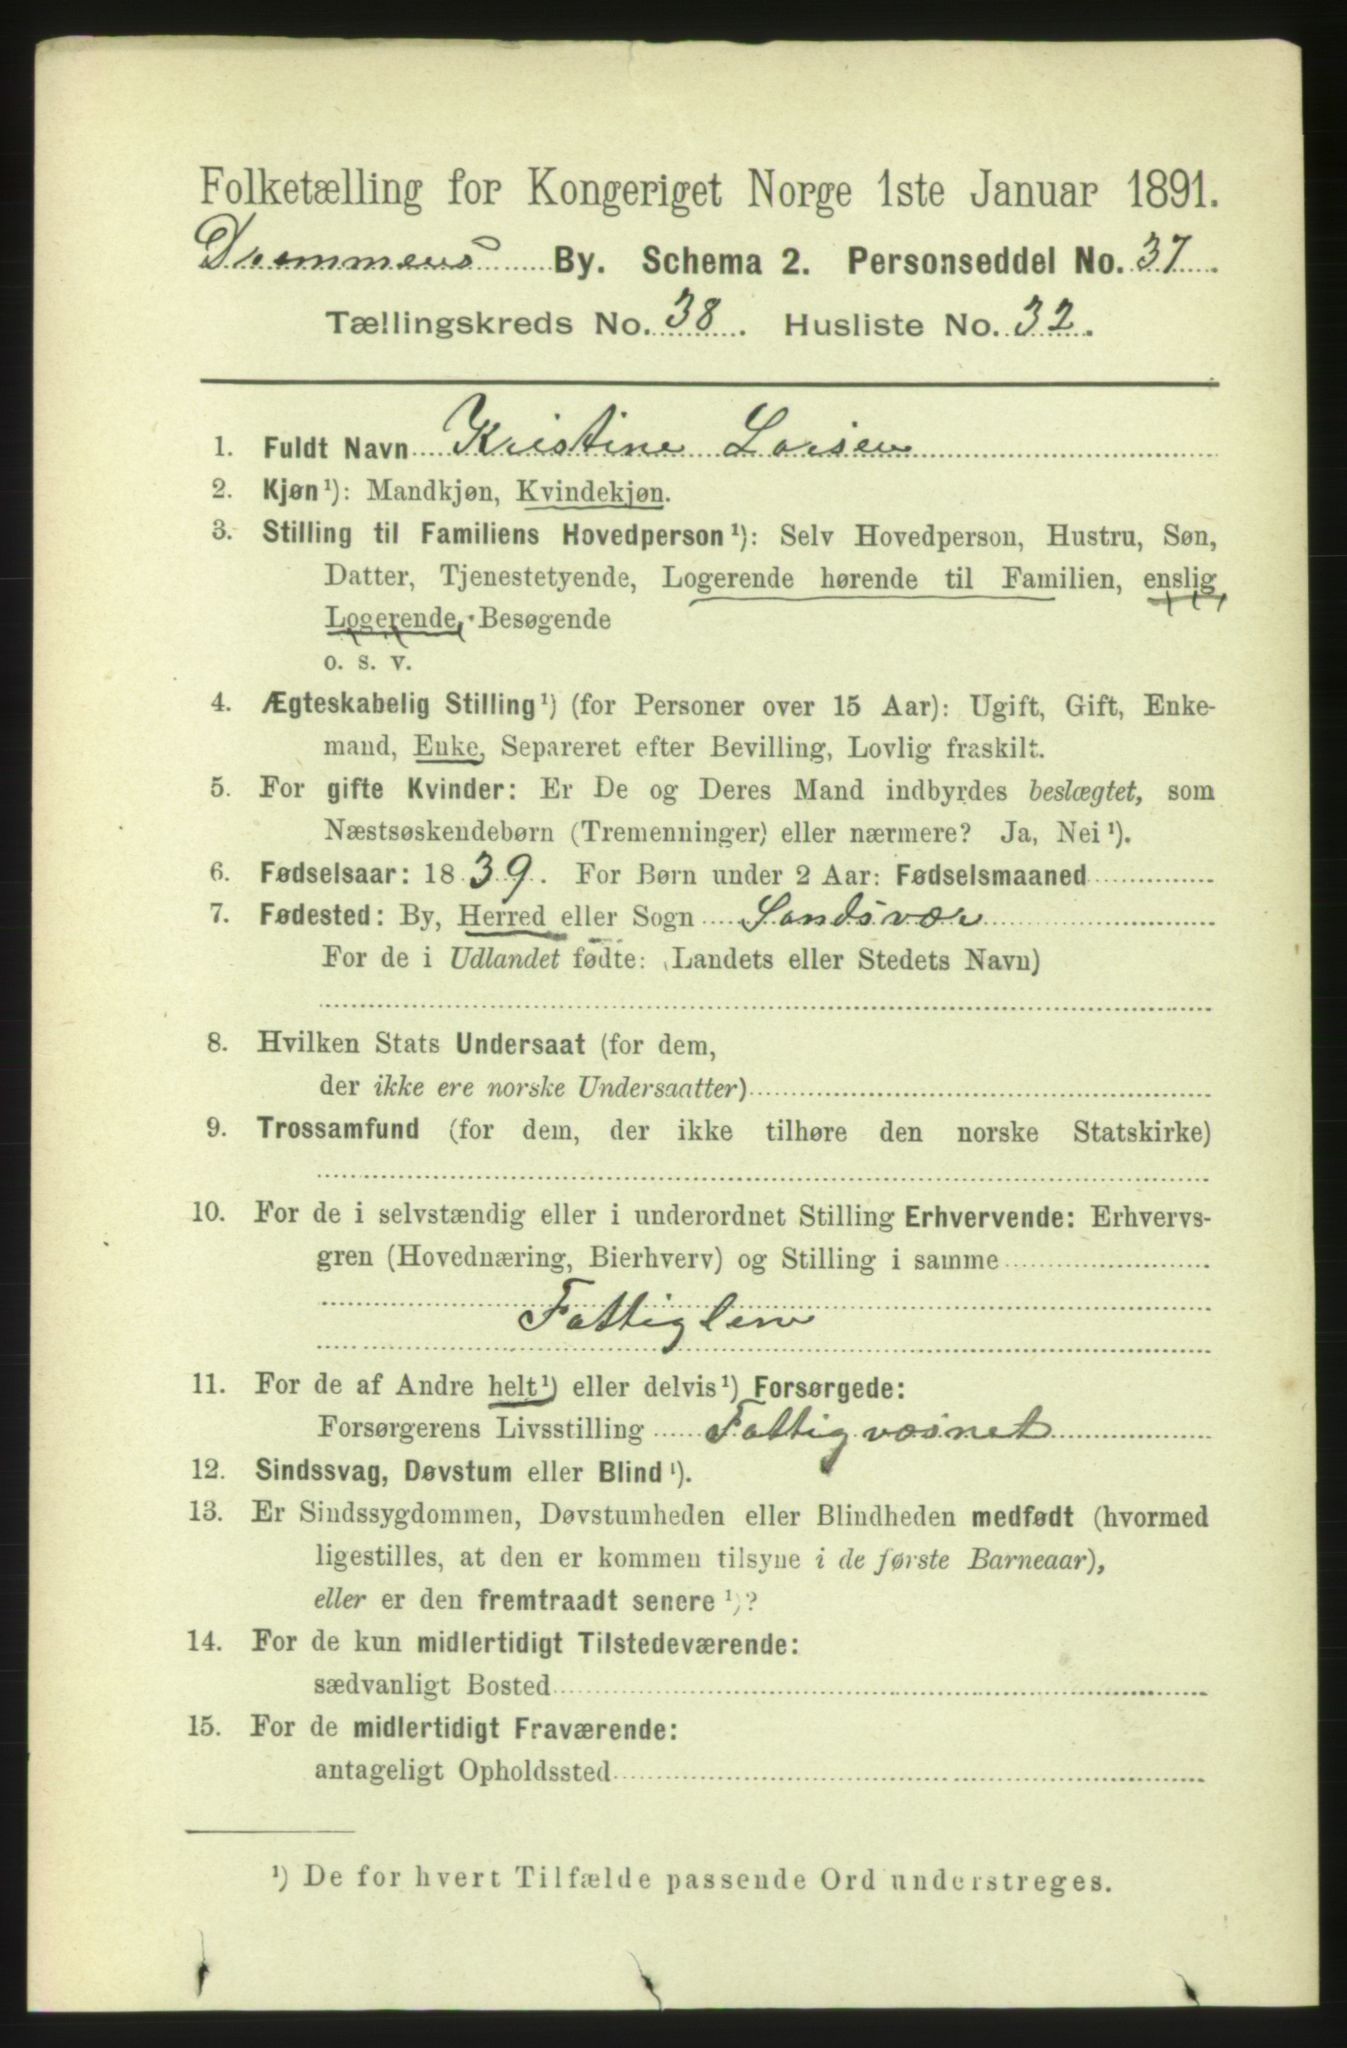 Folketælling for Kongeriget Norge 1ste Januar 1891.
Drammens By. Schema 2. Personseddel No. 37.
Tællingskreds No. 38. Husliste No. 32.
1. Fuldt Navn Kristine Larsen
2. Kjøn¹): Mandkjøn, Kvindekjøn.
3. Stilling til Familiens Hovedperson¹): Selv Hovedperson, Hustru, Søn,
Datter, Tjenestetyende, Logerende hørende til Familien, enslig
Logerende, Besøgende
o. s. v.
4. Ægteskabelig Stilling¹) (for Personer over 15 Aar): Ugift, Gift, Enke-
mand, Enke, Separeret efter Bevilling, Lovlig fraskilt.
5. For gifte Kvinder: Er De og Deres Mand indbyrdes beslægtet, som
Næstsøskendebørn (Tremenninger) eller nærmere? Ja, Nei¹).
6. Fødselsaar: 1839. For Børn under 2 Aar: Fødselsmaaned
7. Fødested: By, Herred eller Sogn Sandsvær
For de i Udlandet fødte: (Landets eller Stedets Navn)
8. Hvilken Stats Undersaat (for dem,
der ikke ere norske Undersaatter)
9. Trossamfund (for dem, der ikke tilhøre den norske Statskirke)
10. For de i selvstændig eller i underordnet Stilling Erhvervende: Erhvervs-
gren (Hovednæring, Bierhverv) og Stilling i samme
Fattiglem
11. For de af Andre helt¹) eller delvis¹) Forsørgede:
Forsørgerens Livsstilling Fattigvæsnet
12. Sindssvag, Døvstum eller Blind¹).
13. Er Sindssygdommen, Døvstumheden eller Blindheden medfødt (hvormed
ligestilles, at den er kommen tilsyne i de første Barneaar),
eller er den fremtraadt senere¹)?
14. For de kun midlertidigt Tilstedeværende:
sædvanligt Bosted
15. For de midlertidigt Fraværende:
antageligt Opholdssted
¹) De for hvert Tilfælde passende Ord understreges.